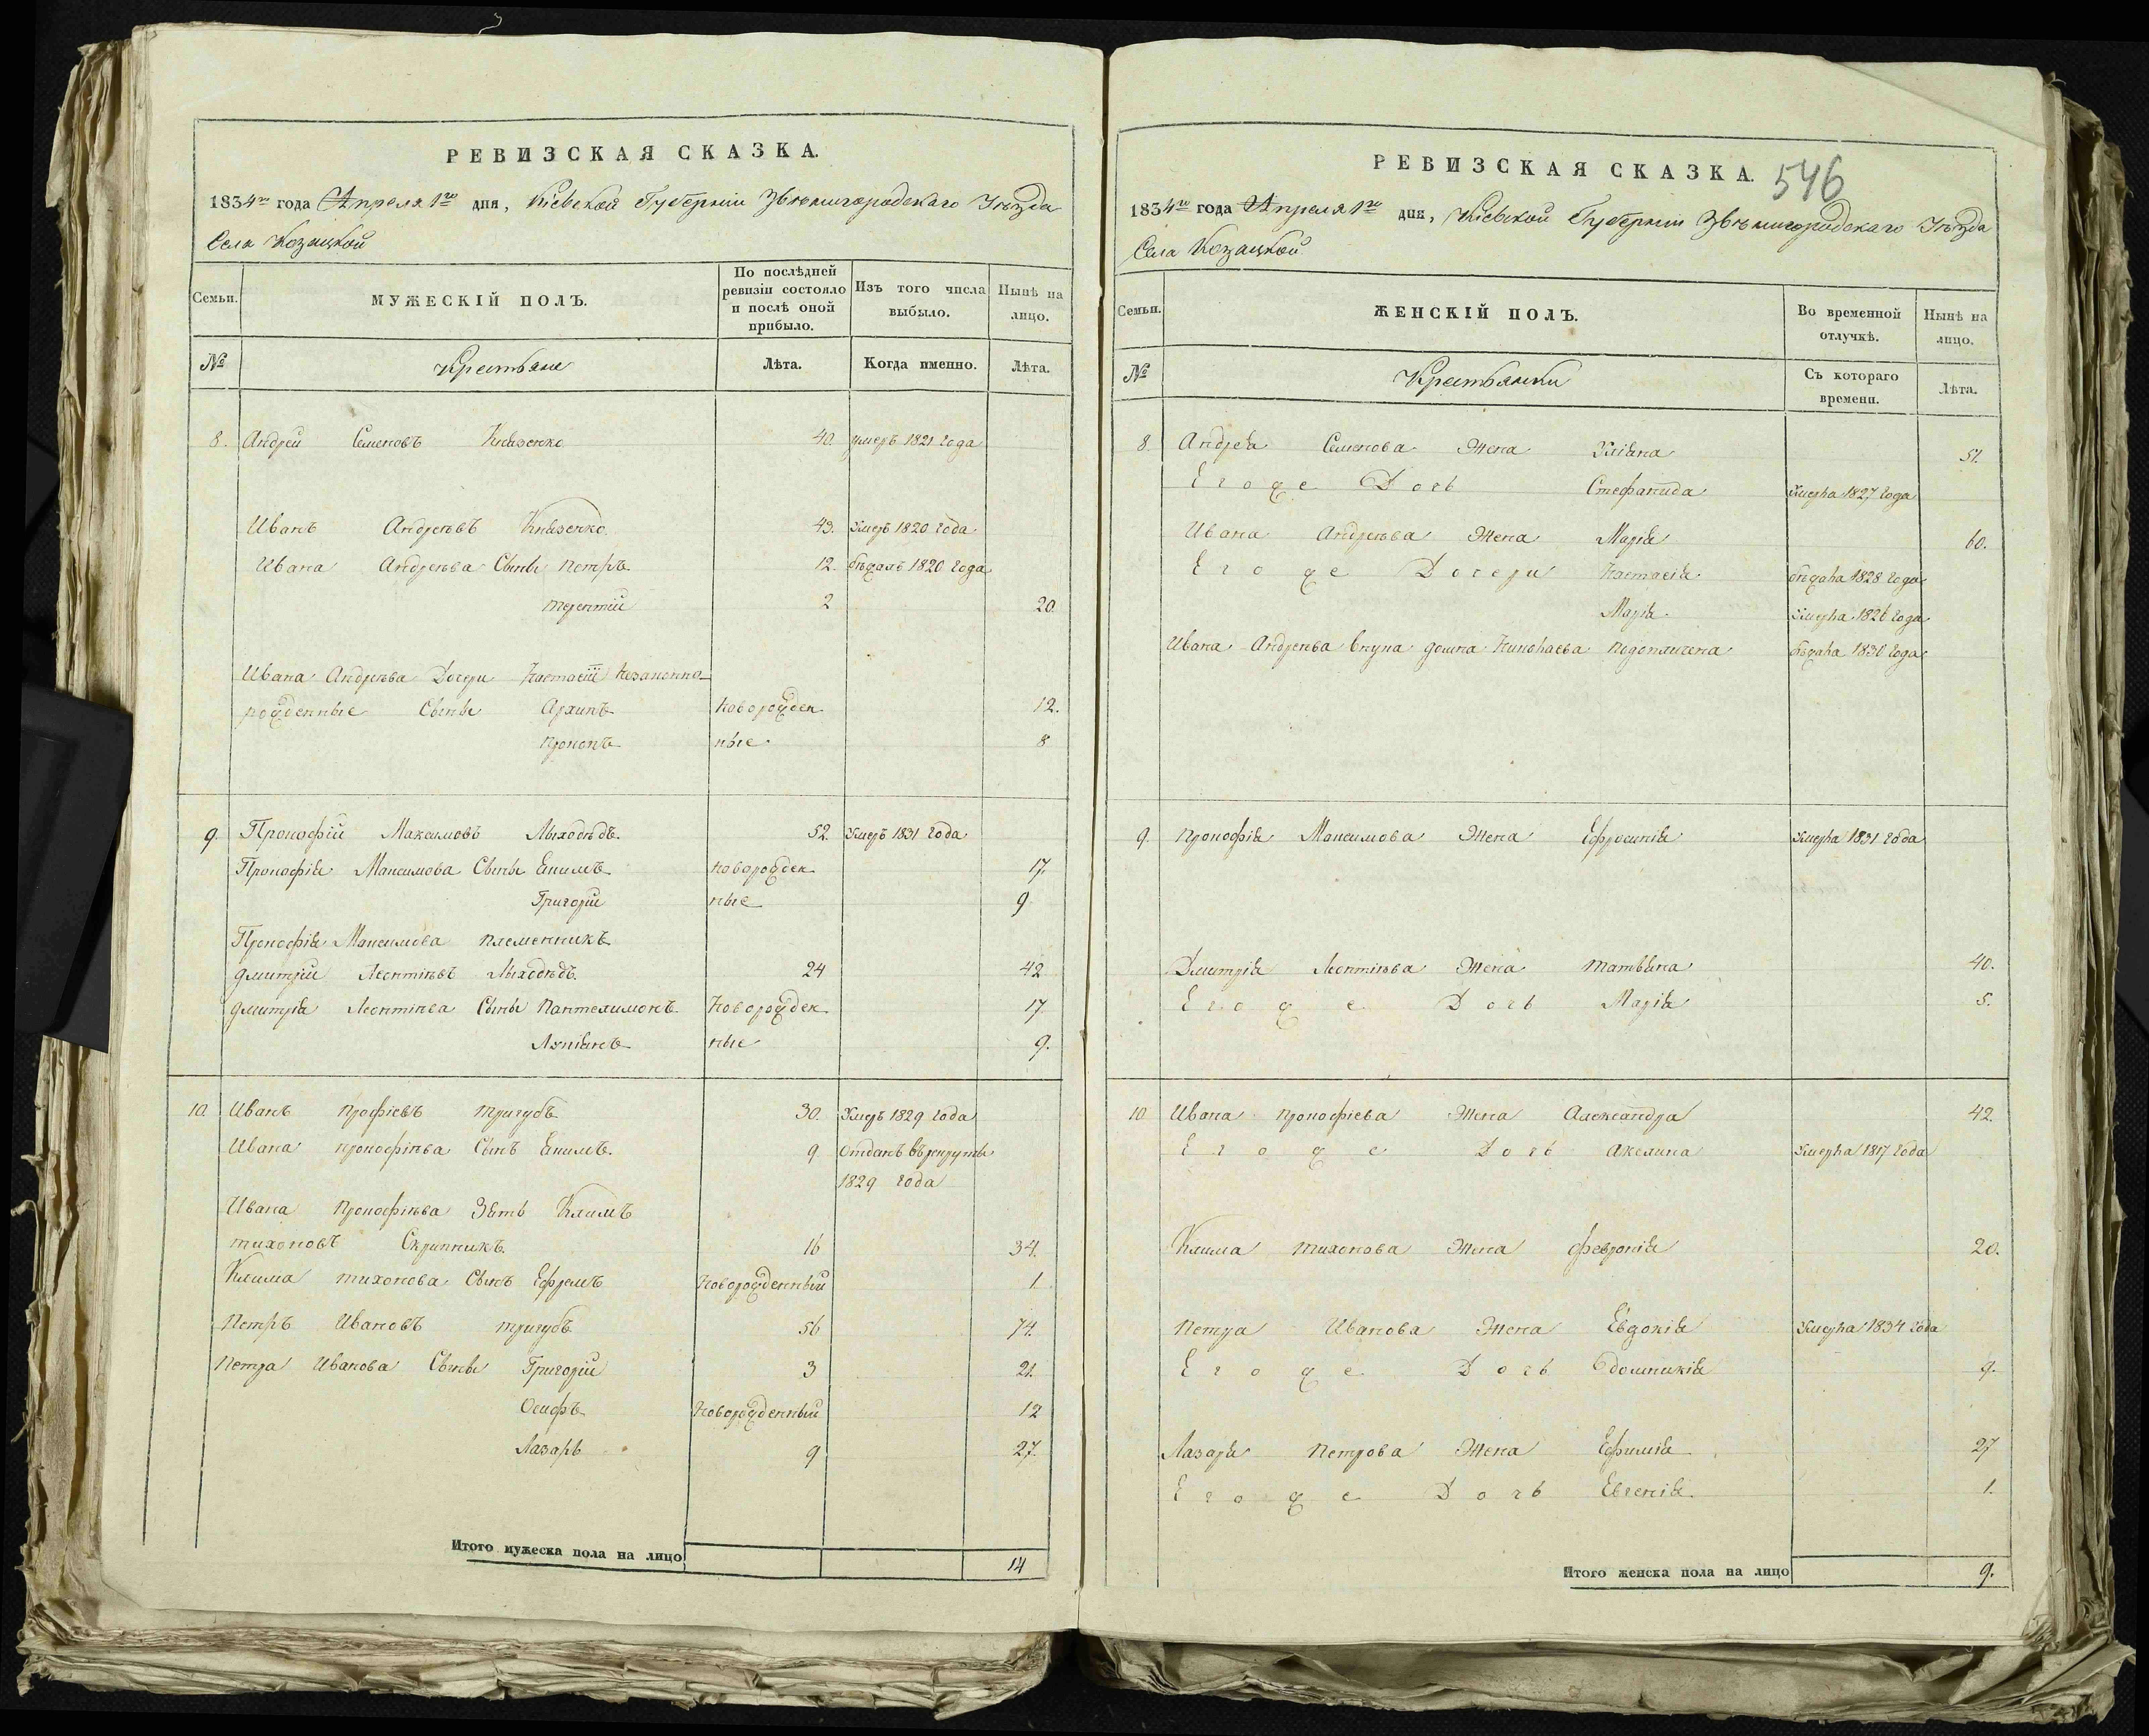 РЕВИЗСКАЯ СКАЗКА.
1834го года Апреля 1го дня, Кіевской Губерніи Звѣнигородскаго Уѣзда
Села Козацкой
Семьи.
МУЖЕСКІЙ ПОЛЪ.
По послѣдней ревизіи состояло и послѣ оной прибыло.
Изъ того числа выбыло.
Нынѣ на лицо.
№
Крестьяне
Лѣта.
Когда именно.
Лѣта.
8. Андрей Семеновъ Князенко 40. умеръ 1821 года
Иванъ Андреевъ Князенко 43. Умеръ 1820 года
Ивана Андреева Сыны Петръ 12. бѣжалъ 1820 года
терентій 2 20.
Ивана Андреева Дочери Настасіи Незаконно
рожденные Сыны Архипъ Новорожден 12.
Прокопъ ные 8
9. Прокофій Максимовъ Лыходѣдъ 52. Умеръ 1831 года
Прокофія Максимова Сыны Екимъ новорожден 17.
Григорій ные 9
Прокофія Максимова племенникъ
дмитрій Леонтіевъ Лыходѣдъ 24 42
дмитрія Леонтіева Сыны Пантелимонъ Новорожден 17
Лукіянъ ные 9.
10. Иванъ Профіевъ тригубъ 30. Умеръ 1829 года
Ивана прокофіева Сынъ Екимъ 9 Отданъ въ рекруты
1829 года
Ивана Прокофіева Зять Климъ
тихоновъ Скрипникъ 16 34.
Клима тихонова Сынъ Ефремъ Новорожденный 1
Петръ Ивановъ тригубъ 56 74.
Петра Иванова Сыны Григорій 3 21.
Осифъ Новорожденный 12
Лазаръ 9 27.
Итого мужеска пола на лицо 14
РЕВИЗСКАЯ СКАЗКА. 546
1834го года Апреля 1го дня, Кіевской Губерніи Звѣнигородскаго Уѣзда
Села Козацкой
Семьи.
ЖЕНСКІЙ ПОЛЪ.
Во временной отлучкѣ.
Нынѣ на лицо.
№
Крестьянки
Съ котораго времени.
Лѣта.
8. Андрея Семенова Жена Уліяна 51.
Егоже Дочь Стефанида Умерла 1827 года
Ивана Андреева Жена Марія 60.
Егоже Дочери Настасія бѣжала 1828 года
Марія Умерла 1826 года
Ивана Андреева Внука домка Николаева Подоплигена бѣжала 1830 года
9. Прокофія Максимова Жена Ефросинія Умерла 1831 года
Дмитрія Леонтіева Жена татьяна 40.
Егоже Дочь Марія 5.
10. Ивана прокофіева Жена Александра 42.
Егоже Дочь акелина Умерла 1817 года
Клима тихонова Жена февронія 20.
Петра Иванова Жена Евдокія Умерла 1834 года
Егоже Дочь Едомникія 9.
Лазаря Петрова Жена Ефимія 27
Егоже Дочь Евгенія 1.
Итого женска пола на лицо 9.